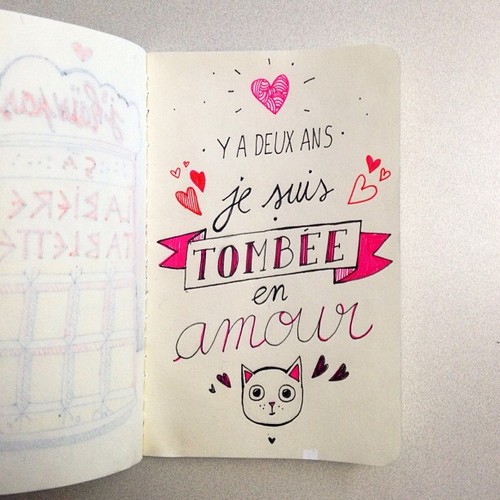 Y A DEUX ANS
je suis
TOMBÉE
en
amour